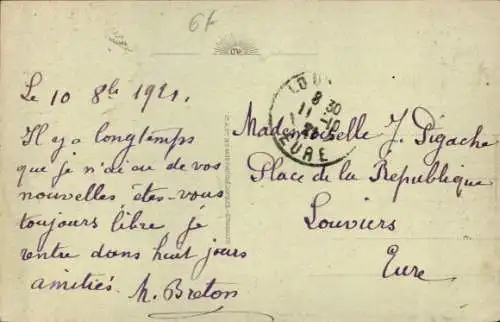 67
Le 10 8bre 1921.
Il y a longtemps
que je n'ai eu de vos
nouvelles, êtes-vous
toujours libre je
rentre dans huit jours
amitiés. M. Breton
LOU
8 30
11 -10
EURE
Mademoiselle J. Pigache
Place de la République
Louviers
Eure